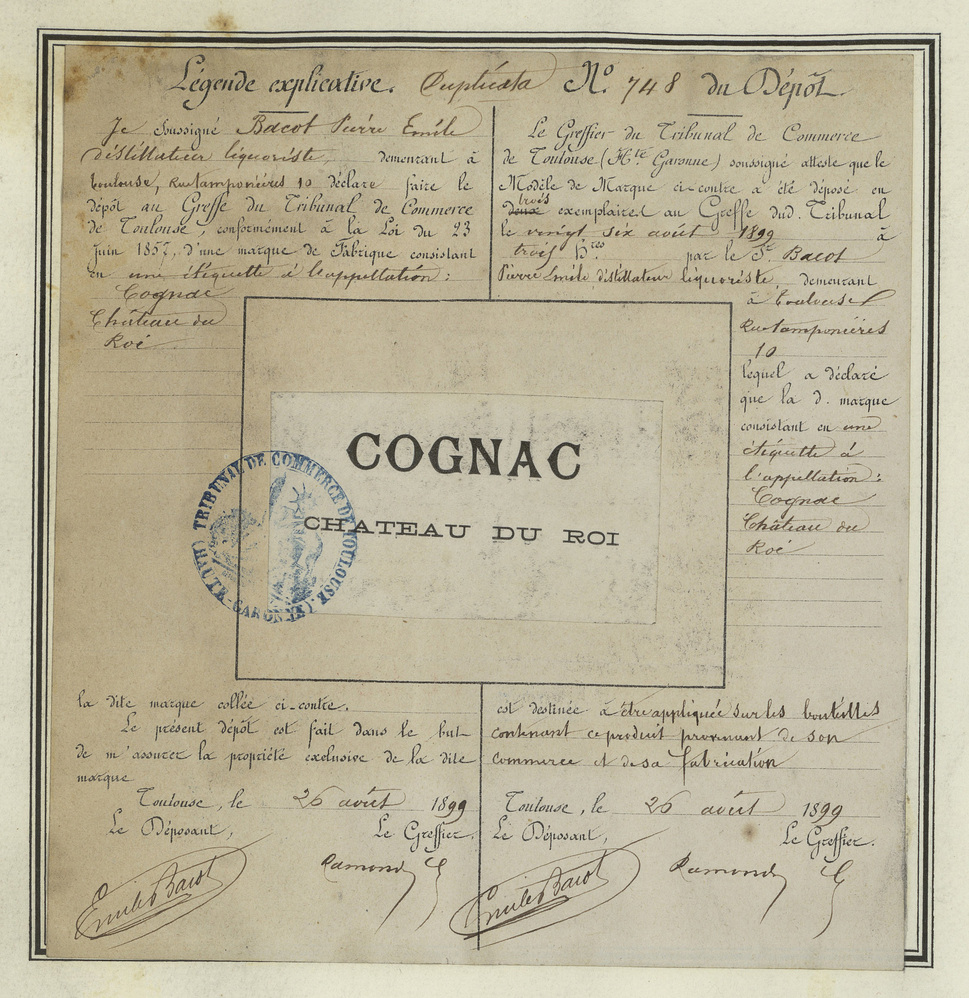 Légende explicative. Duplicata N° 748 du Dépôt.
Je soussigné Bacot Pierre Emile
distillateur liquoriste, demeurant à
toulouse, Rue tamponières 10 déclare faire le
dépôt au Greffe du Tribunal de Commerce
de Toulouse, conformément à la Loi du 23
juin 1857, d'une marque de Fabrique consistant
en une étiquette à l'appellation :
Cognac
Château du
Roi
la dite marque collée ci-contre.
Le présent dépôt est fait dans le but
de m'assurer la propriété exclusive de la dite
marque
Toulouse, le 26 août 1899
Le Déposant, Le Greffier.
Emile Bacot Ramond
Le Greffier du Tribunal de Commerce
de Toulouse (Hte Garonne) soussigné atteste que le
Modèle de Marque ci-contre a été déposé en
trois
deux exemplaires au Greffe dud. Tribunal
le vingt six août 1899 à
trois hres par le Sr. Bacot
Pierre Emile distillateur liquoriste, demeurant
à toulouse
Rue tamponières
10
lequel a déclaré
que la d. marque
consistant en une
étiquette à
l'appellation :
Cognac
Château du
Roi
est destinée à être appliquée sur les bouteilles
contenant ce produit provenant de son
commerce et de sa fabrication
Toulouse, le 26 août 1899
Le Déposant, Le Greffier.
Emile Bacot Ramond
COGNAC
CHATEAU DU ROI
TRIBUNAL DE COMMERCE DE TOULOUSE
(HAUTE-GARONNE)